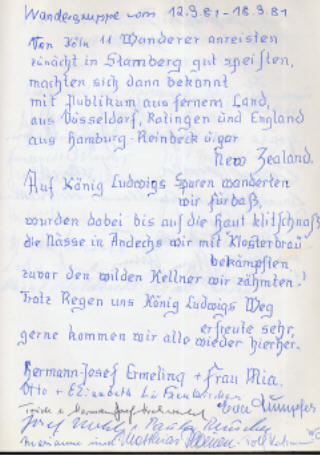 Wandergruppe vom 12.9.81 - 18.9.81
Von Köln 11 Wanderer anreisten
zunächst in Starnberg gut speisten,
machten sich dann bekannt
mit Publikum aus fernem Land,
aus Düsseldorf, Ratingen und England
aus Hamburg-Reinbeck u.gar
New Zealand.
Auf König Ludwigs Spuren wanderten
wir fürbaß,
wurden dabei bis auf die Haut klitschnaß
die Nässe in Andechs wir mit "Klosterbräu"
bekämpften,
zuvor den wilden Kellner wir zähmten!
Trotz Regen uns König Ludwigs Weg
erfreute sehr,
gerne kommen wir alle wieder hierher.
Hermann-Josef Ermeling + Frau Mia.
Otto + Elisabeth
Josef
Marianne und Matthias